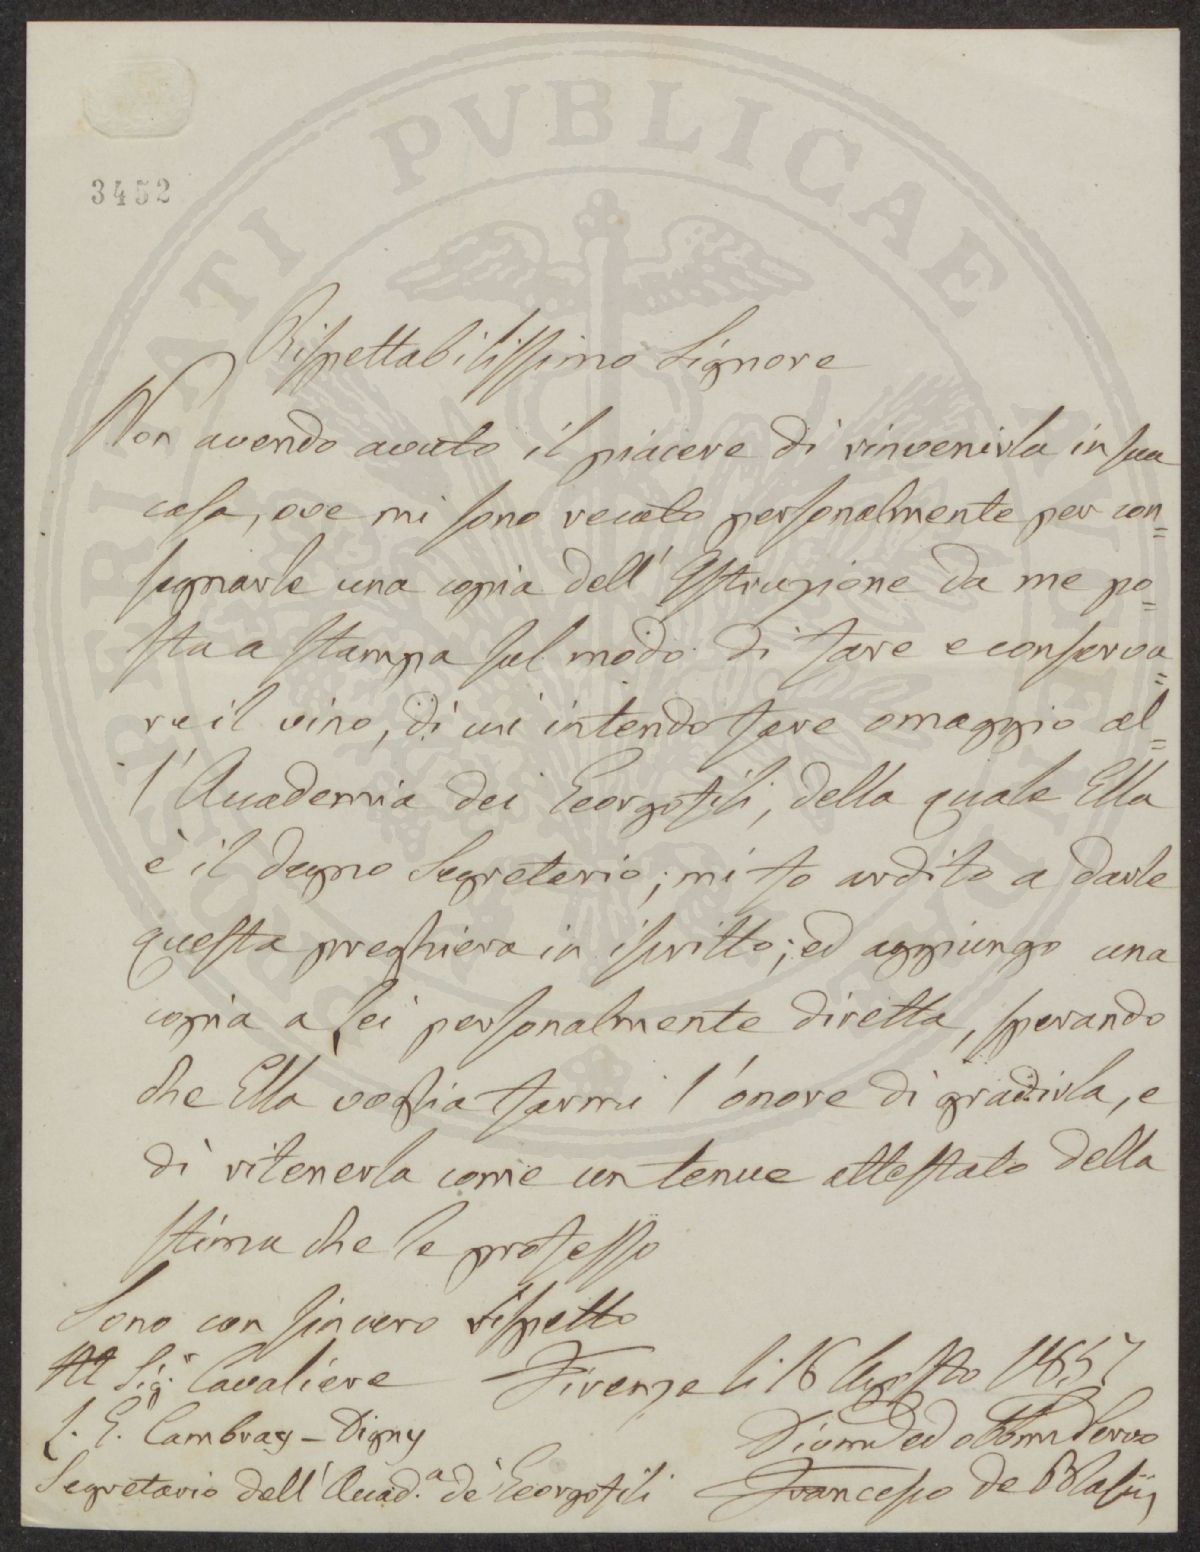 PROSPERITATI PVBLICAE AVGENDAE
3452
Rispettabilissimo Signore
Non avendo avuto il piacere di rinvenirla in sua
casa, ove mi sono recato personalmente per con=
segnarle una copia dell'Istruzione da me po=
sta a stampa sul modo di fare e conserva=
re il vino, di cui intendo fare omaggio al=
l'Accademia dei Georgofili, della quale Ella
è il degno Segretario; mi fo ardito a darle
questa preghiera in iscritto; ed aggiungo una
copia a Lei personalmente diretta, sperando
che Ella voglia farmi l'onore di gradirla, e
di ritenerla come un tenue attestato della
stima che le professo
Sono con sincero rispetto
Al Sig.r Cavaliere
Firenze li 16 Agosto 1857
L. G. Cambray-Digny
Di Lei ed obbmo Servo
Segretario dell'Accad.a de' Georgofili
Francesco De Blasiis